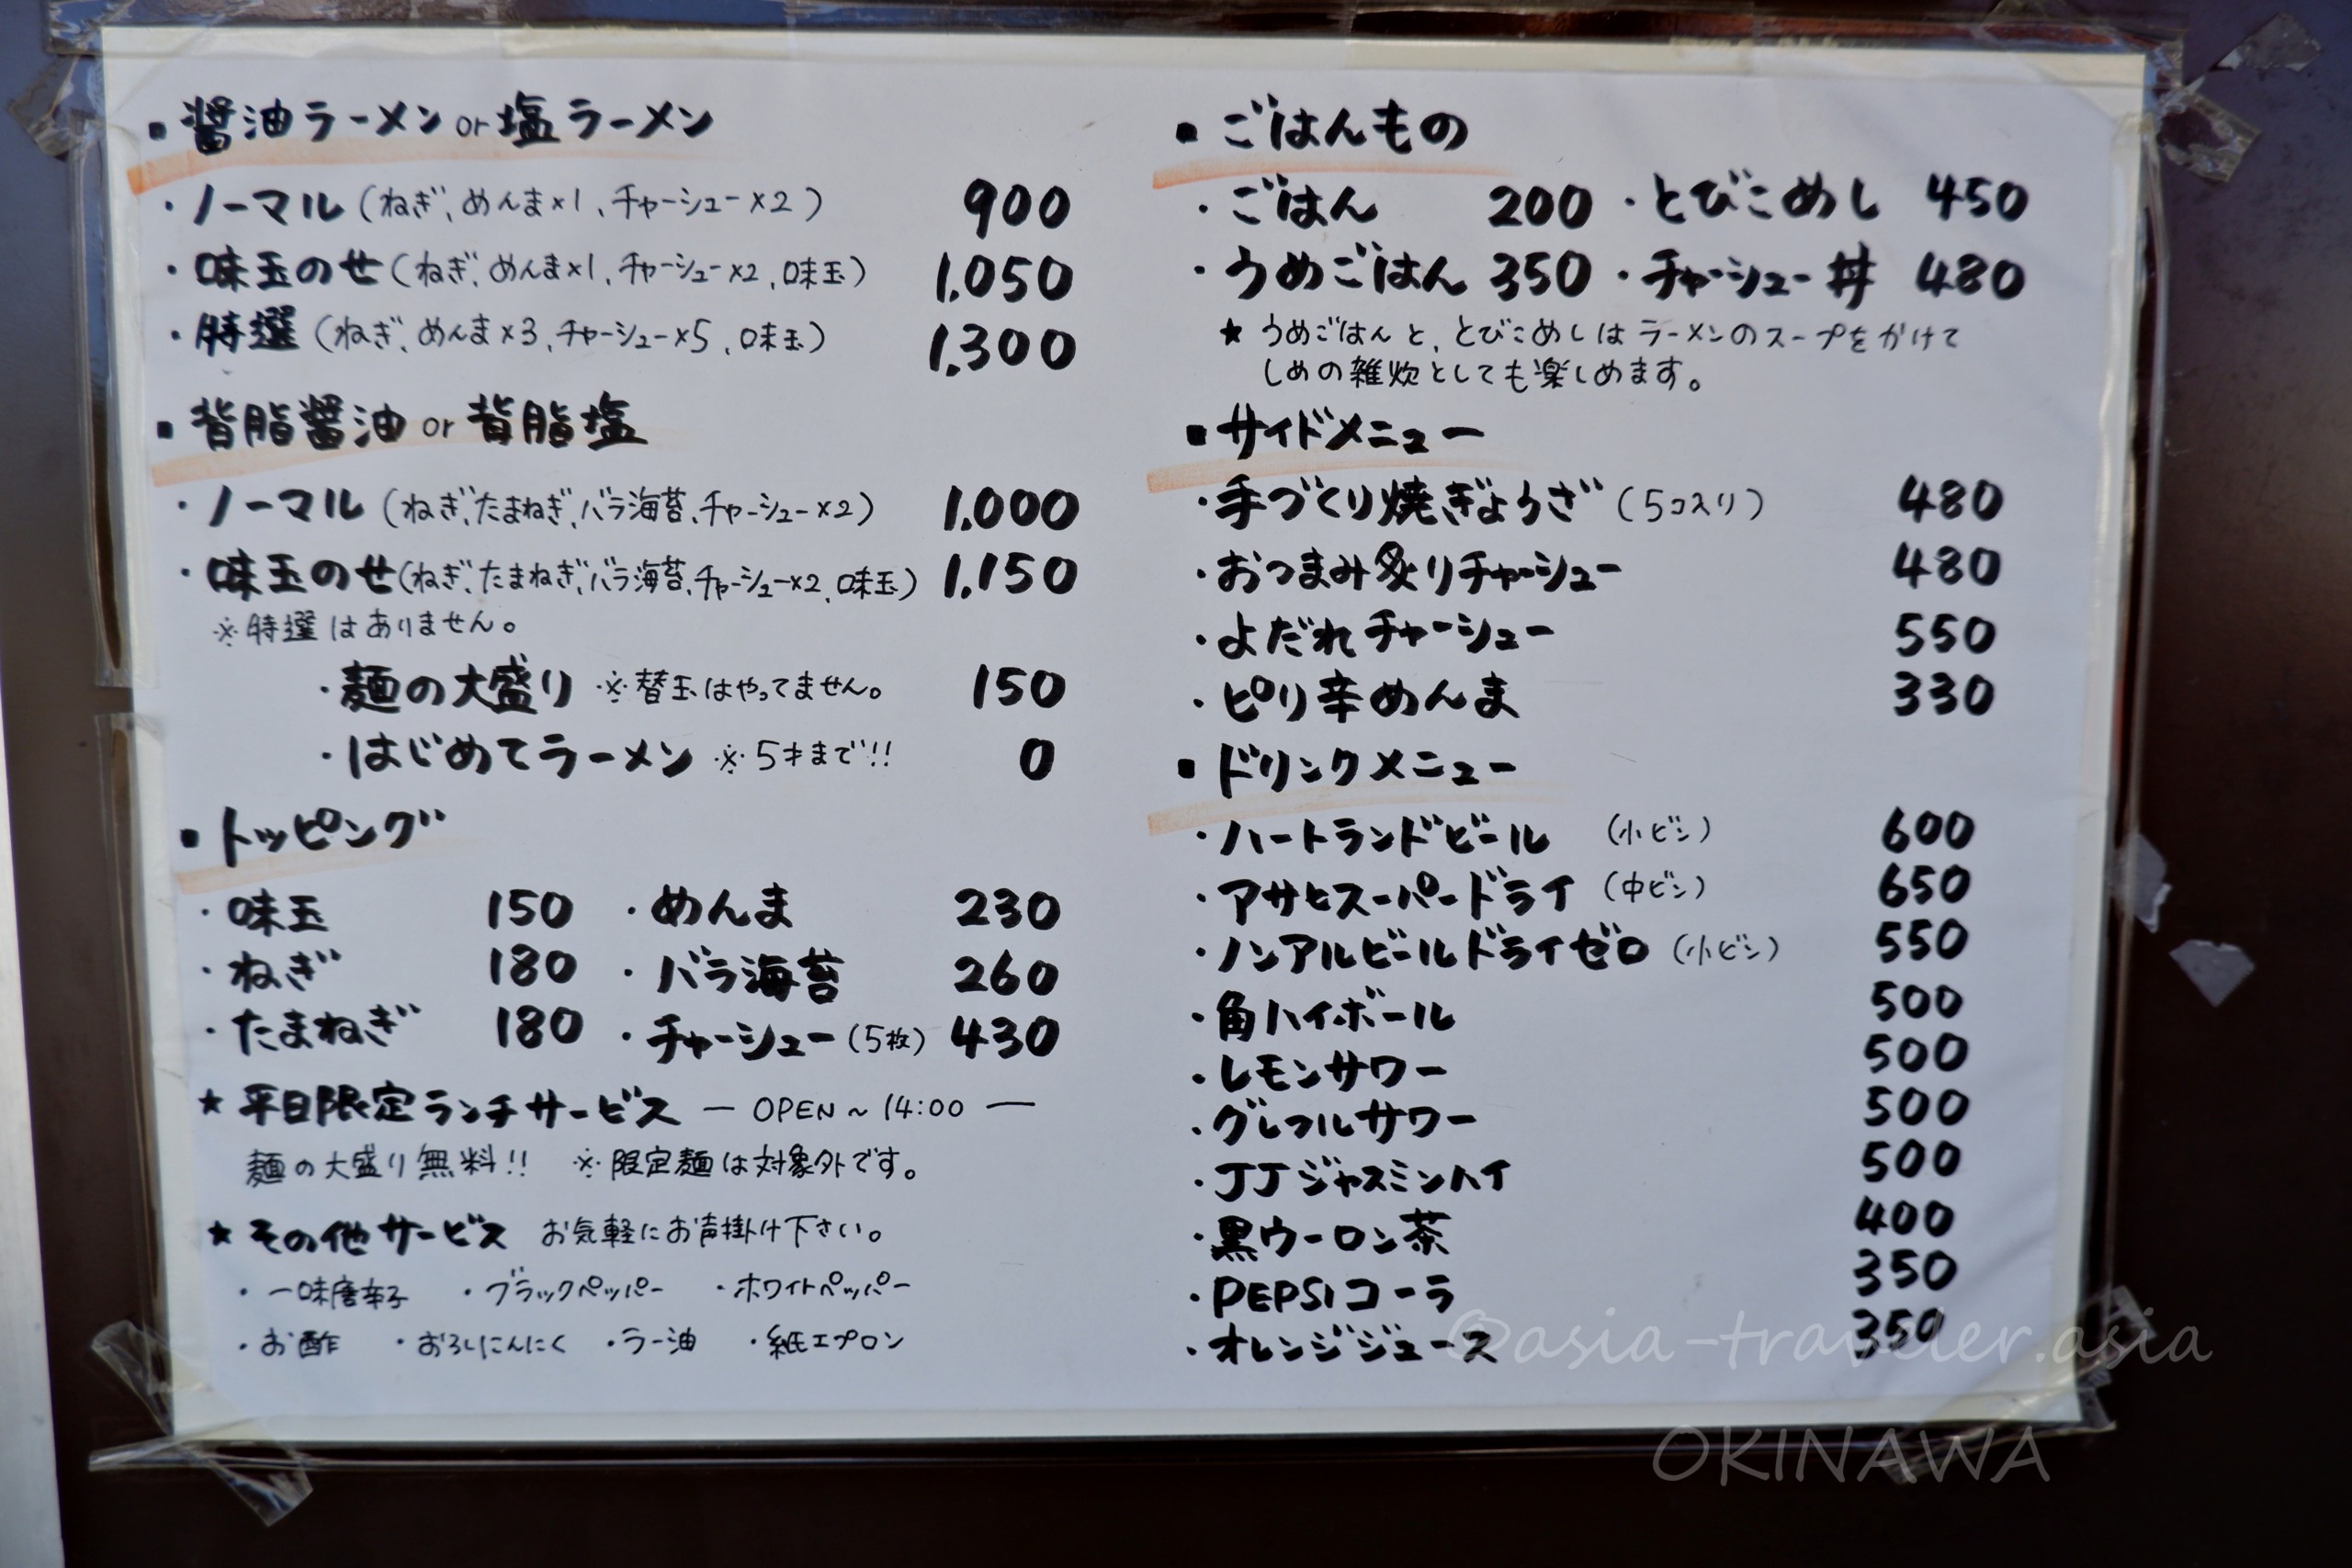 ▪醤油ラーメン or 塩ラーメン
・ノーマル(ねぎ、めんま×1、チャーシュー×2) 900
・味玉のせ(ねぎ、めんま×1、チャーシュー×2、味玉) 1,050
・特選(ねぎ、めんま×3、チャーシュー×5、味玉) 1,300
▪背脂醤油 or 背脂塩
・ノーマル(ねぎ、たまねぎ、バラ海苔、チャーシュー×2) 1,000
・味玉のせ(ねぎ、たまねぎ、バラ海苔、チャーシュー×2、味玉) 1,150
※特選はありません。
・麺の大盛り ※替玉はやってません。 150
・はじめてラーメン ※5才まで!! 0
▪トッピング
・味玉 150 ・めんま 230
・ねぎ 180 ・バラ海苔 260
・たまねぎ 180 ・チャーシュー(5枚) 430
★平日限定ランチサービス ー OPEN~14:00 ー
麺の大盛り無料!! ※限定麺は対象外です。
★その他サービス お気軽にお声掛け下さい。
・一味唐辛子 ・ブラックペッパー ・ホワイトペッパー
・お酢 ・おろしにんにく ・ラー油 ・紙エプロン
▪ごはんもの
・ごはん 200 ・とびこめし 450
・うめごはん 350 ・チャーシュー丼 480
★うめごはんと、とびこめしはラーメンのスープをかけて
しめの雑炊としても楽しめます。
▪サイドメニュー
・手づくり焼ぎょうざ(5コ入り) 480
・おつまみ炙りチャーシュー 480
・よだれチャーシュー 550
・ピリ辛めんま 330
▪ドリンクメニュー
・ハートランドビール (小ビン) 600
・アサヒスーパードライ (中ビン) 650
・ノンアルビールドライゼロ (小ビン) 550
・角ハイボール 500
・レモンサワー 500
・グレフルサワー 500
・JJジャスミンハイ 500
・黒ウーロン茶 400
・PEPSIコーラ 350
・オレンジジュース 350
@asia-traveler.asia
OKINAWA